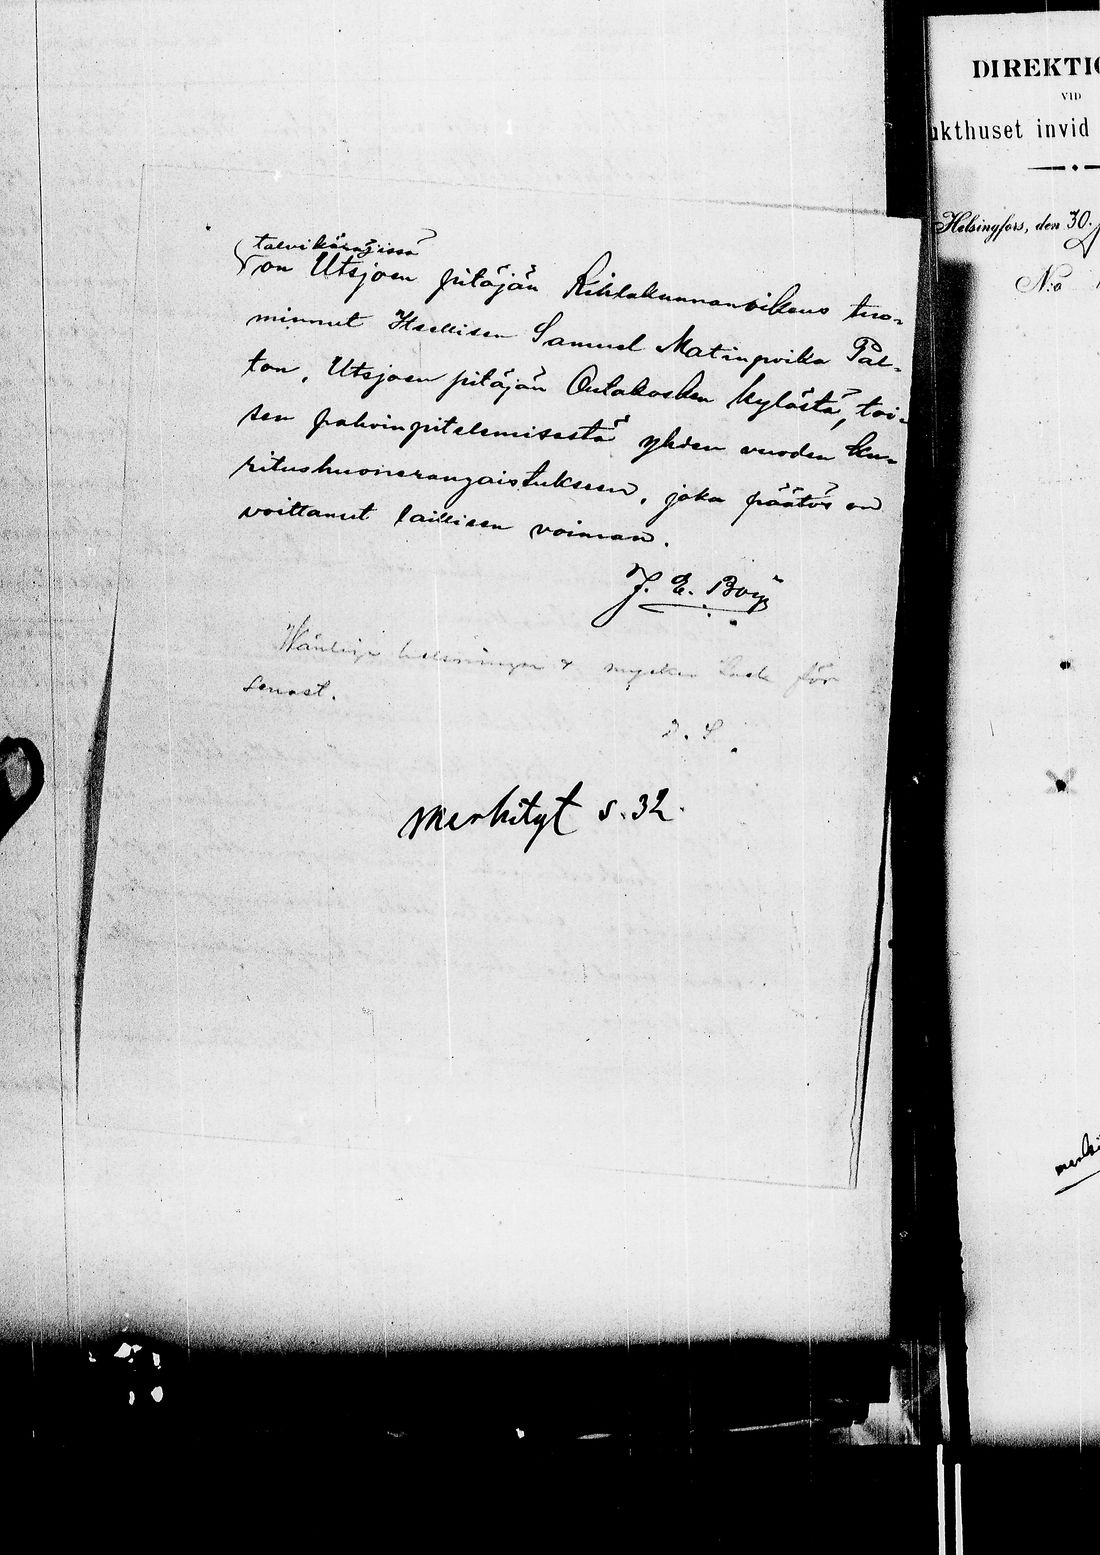 talvikäräjissä
on Utsjoen pitäjän Kihlakunnanoikeus tuo-
minnut Itsellisen Samuel Matinpoika Pal-
ton, Utsjoen pitäjän Outakosken kylästä, toi-
sen pahoinpitelemisestä yhden vuoden ku-
ritushuonerangaistukseen, joka päätös on
voittanut laillisen voiman.
J. E. Boy
Wänliga helsningar & mycken tack för
senast.
D. S.
Merkityt s. 32.
DIREKTIO
VID
ukthuset invid
Helsingfors, den 30.
N:o
merki